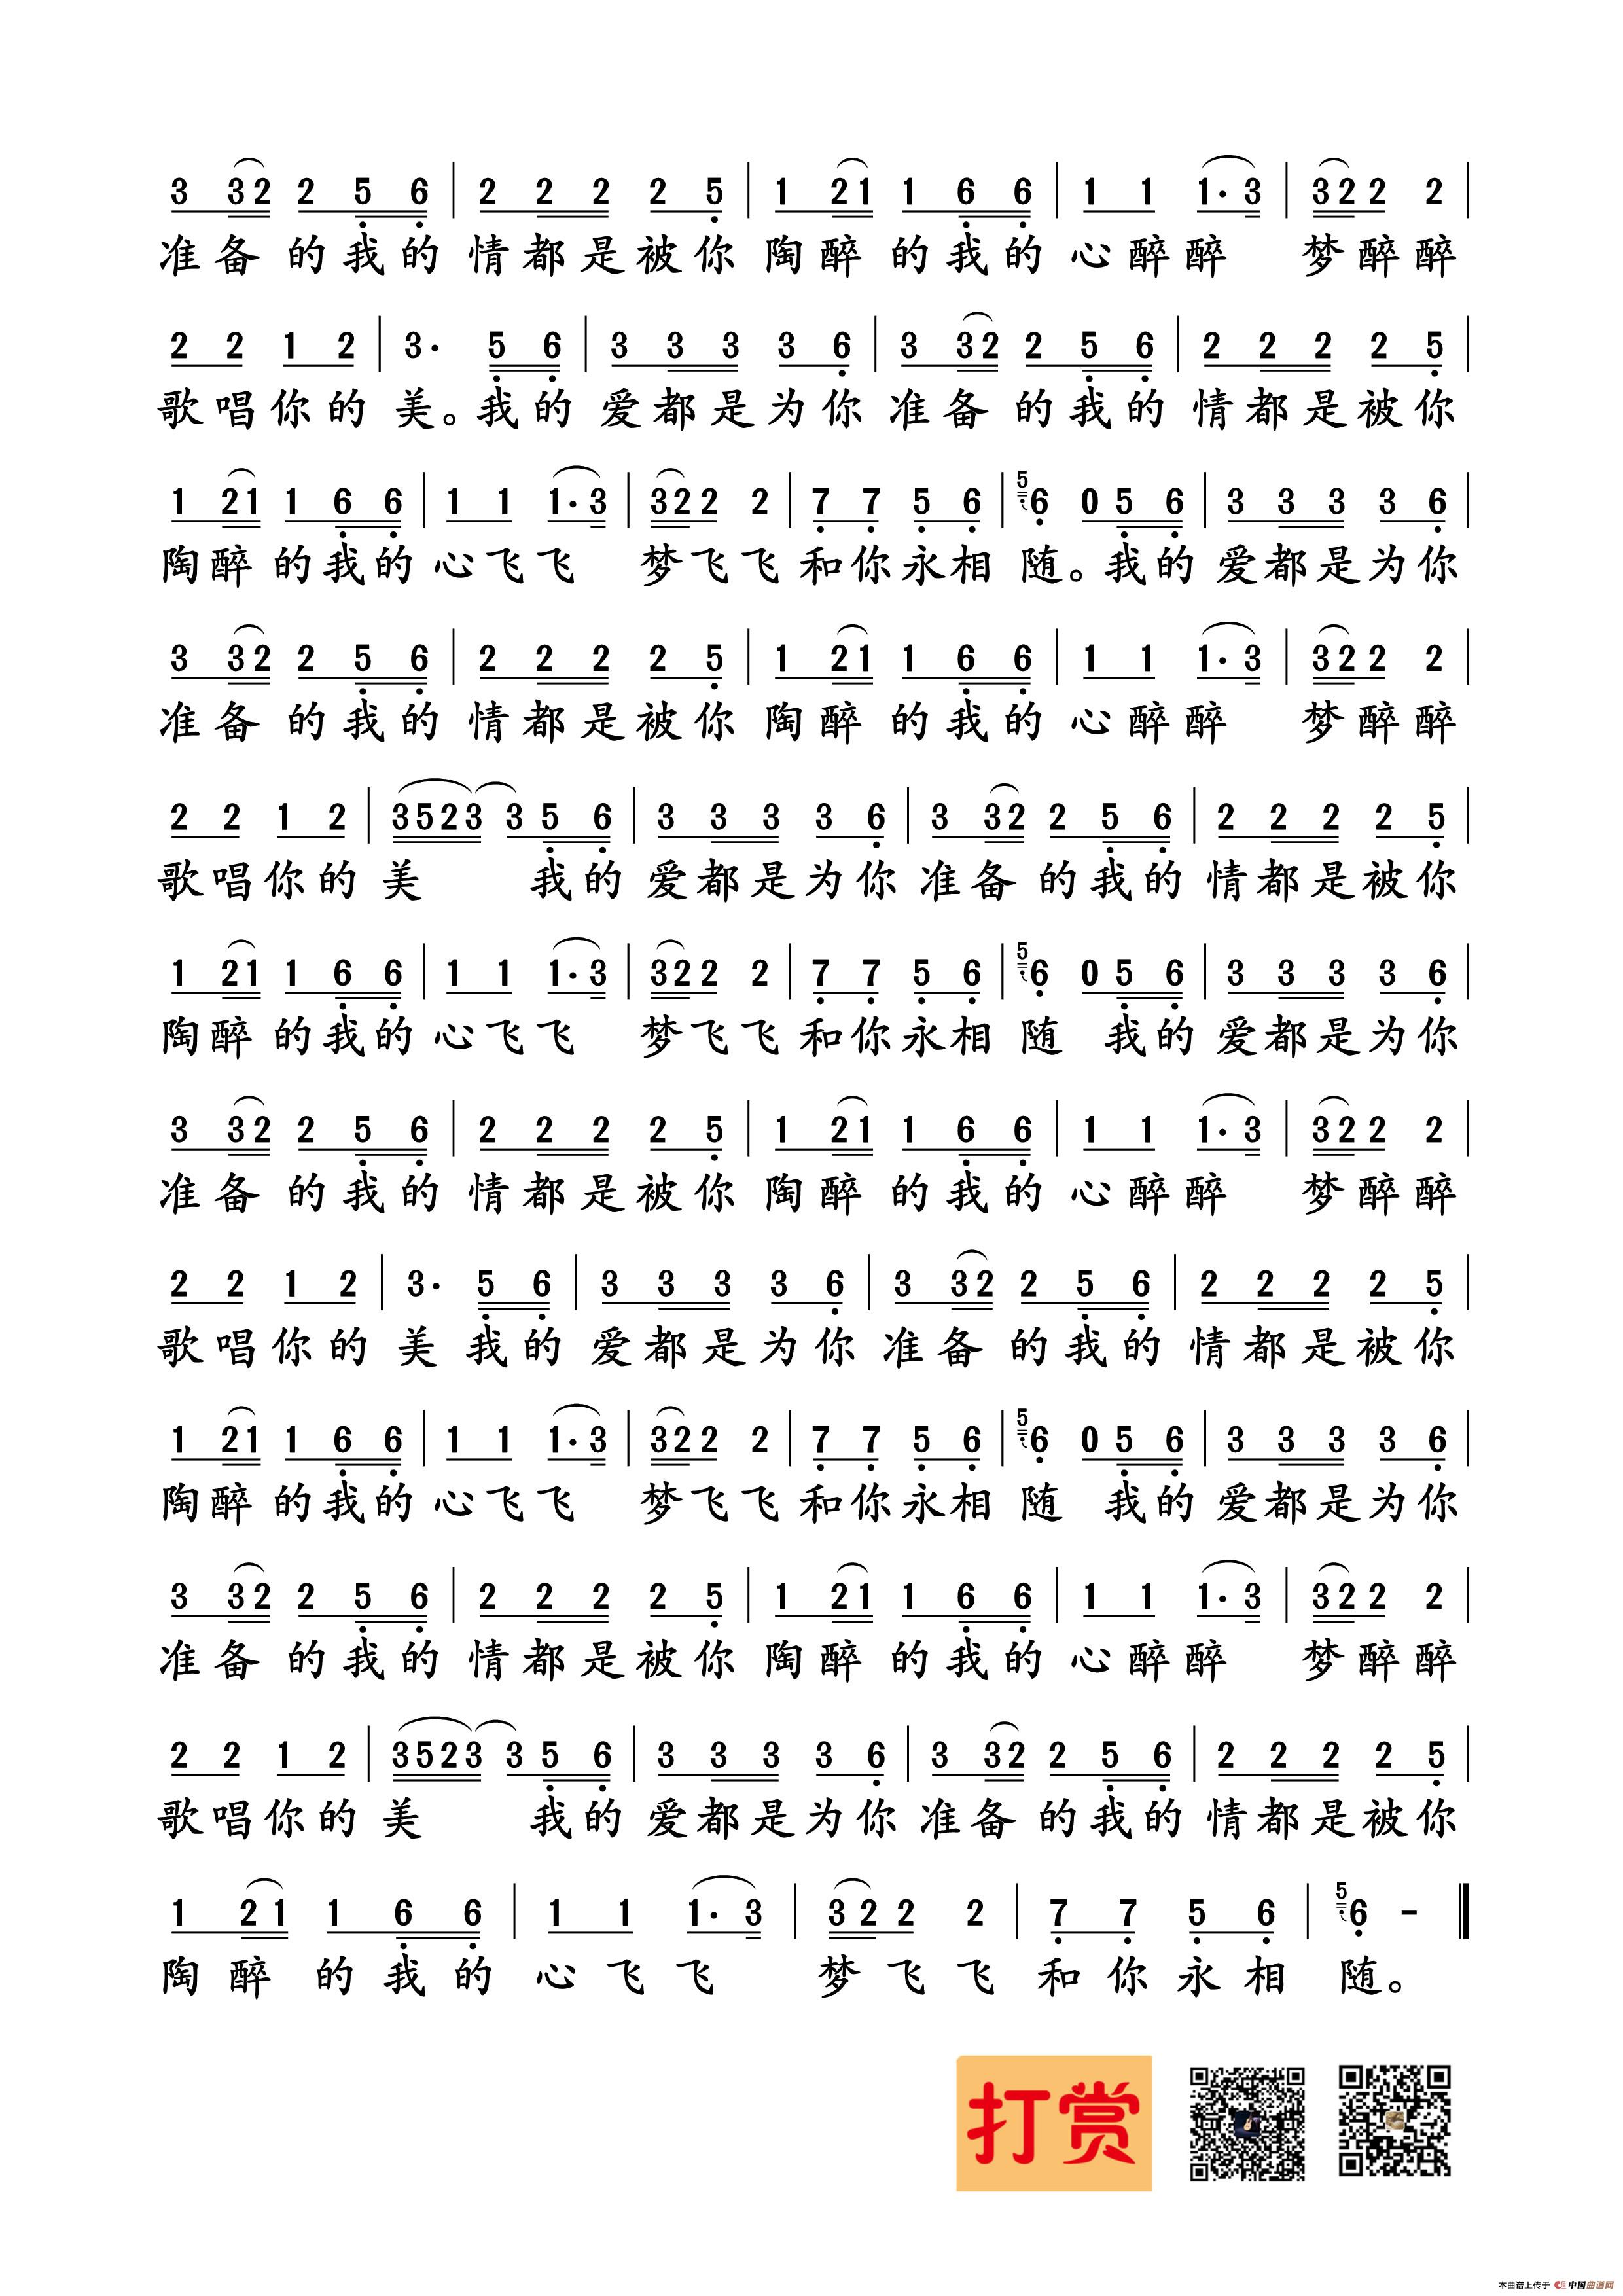 3 32 2 5 6 | 2 2 2 2 5 | 1 21 1 6 6 | 1 1 1· 3 | 32 2 2 |
准备的我的情都是被你陶醉的我的心醉醉 梦醉醉
2 2 1 2 | 3· 5 6 | 3 3 3 3 6 | 3 32 2 5 6 | 2 2 2 2 5 |
歌唱你的美。我的爱都是为你准备的我的情都是被你
1 21 1 6 6 | 1 1 1· 3 | 32 2 2 | 7 7 5 6 | 5 6 0 5 6 | 3 3 3 3 6 |
陶醉的我的心飞飞 梦飞飞和你永相随。我的爱都是为你
3 32 2 5 6 | 2 2 2 2 5 | 1 21 1 6 6 | 1 1 1· 3 | 32 2 2 |
准备的我的情都是被你陶醉的我的心醉醉 梦醉醉
2 2 1 2 | 3523 3 5 6 | 3 3 3 3 6 | 3 32 2 5 6 | 2 2 2 2 5 |
歌唱你的美 我的爱都是为你准备的我的情都是被你
1 21 1 6 6 | 1 1 1· 3 | 32 2 2 | 7 7 5 6 | 5 6 0 5 6 | 3 3 3 3 6 |
陶醉的我的心飞飞 梦飞飞和你永相随 我的爱都是为你
3 32 2 5 6 | 2 2 2 2 5 | 1 21 1 6 6 | 1 1 1· 3 | 32 2 2 |
准备的我的情都是被你陶醉的我的心醉醉 梦醉醉
2 2 1 2 | 3· 5 6 | 3 3 3 3 6 | 3 32 2 5 6 | 2 2 2 2 5 |
歌唱你的美 我的爱都是为你准备的我的情都是被你
1 21 1 6 6 | 1 1 1· 3 | 32 2 2 | 7 7 5 6 | 5 6 0 5 6 | 3 3 3 3 6 |
陶醉的我的心飞飞 梦飞飞和你永相随 我的爱都是为你
3 32 2 5 6 | 2 2 2 2 5 | 1 21 1 6 6 | 1 1 1· 3 | 32 2 2 |
准备的我的情都是被你陶醉的我的心醉醉 梦醉醉
2 2 1 2 | 3523 3 5 6 | 3 3 3 3 6 | 3 32 2 5 6 | 2 2 2 2 5 |
歌唱你的美 我的爱都是为你准备的我的情都是被你
1 21 1 6 6 | 1 1 1· 3 | 32 2 2 | 7 7 5 6 | 5 6 - ‖
陶醉的我的心飞飞 梦飞飞和你永相随。
打赏
本曲谱上传于 中国曲谱网